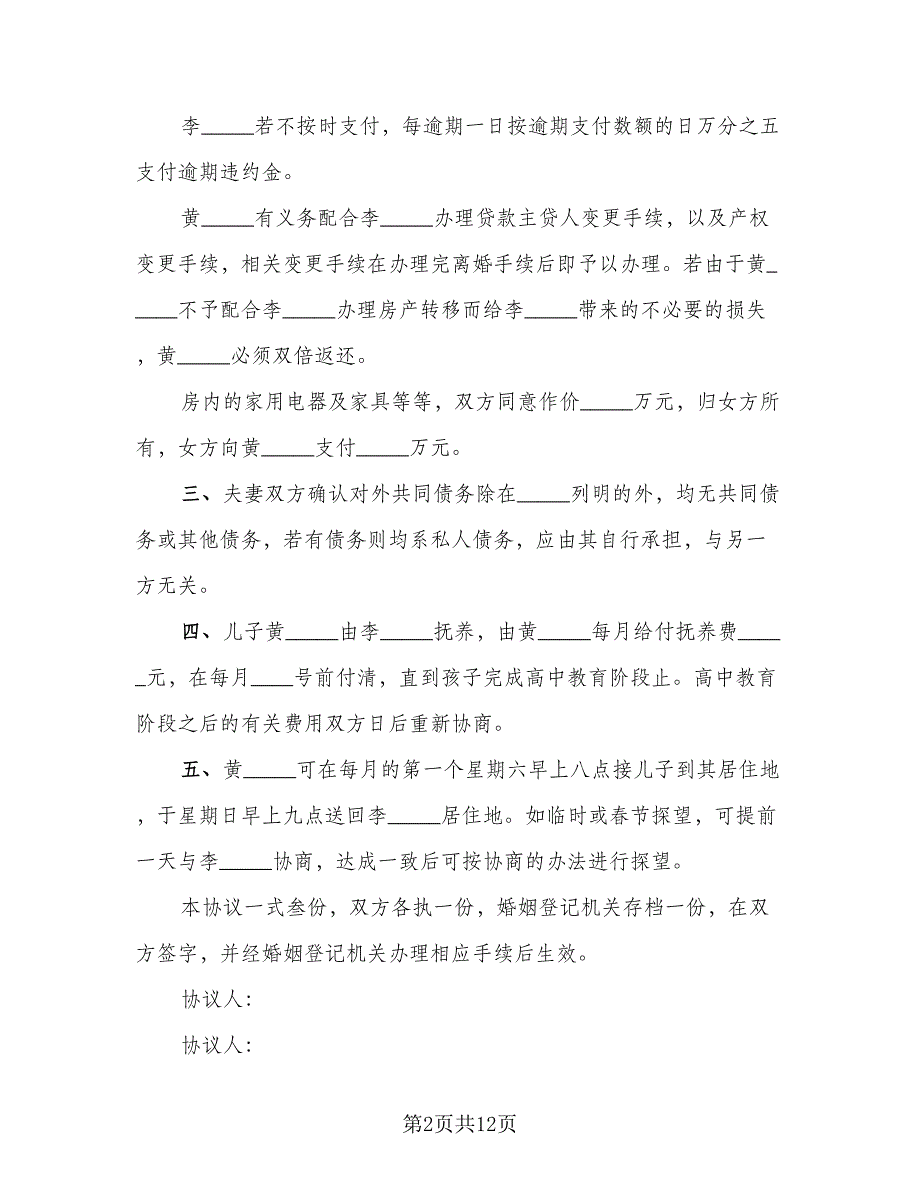 李_____若不按时支付，每逾期一日按逾期支付数额的日万分之五
支付逾期违约金。
黄_____有义务配合李_____办理贷款主贷人变更手续，以及产权
变更手续，相关变更手续在办理完离婚手续后即予以办理。若由于黄_
____不予配合李_____办理房产转移而给李_____带来的不必要的损失
，黄_____必须双倍返还。
房内的家用电器及家具等等，双方同意作价_____万元，归女方所
有，女方向黄_____支付_____万元。
三、夫妻双方确认对外共同债务除在_____列明的外，均无共同债
务或其他债务，若有债务则均系私人债务，应由其自行承担，与另一
方无关。
四、儿子黄_____由李_____抚养，由黄_____每月给付抚养费____
_元，在每月____号前付清，直到孩子完成高中教育阶段止。高中教育
阶段之后的有关费用双方日后重新协商。
五、黄_____可在每月的第一个星期六早上八点接儿子到其居住地
，于星期日早上九点送回李_____居住地。如临时或春节探望，可提前
一天与李_____协商，达成一致后可按协商的办法进行探望。
本协议一式叁份，双方各执一份，婚姻登记机关存档一份，在双
方签字，并经婚姻登记机关办理相应手续后生效。
协议人：
协议人：
第2页共12页